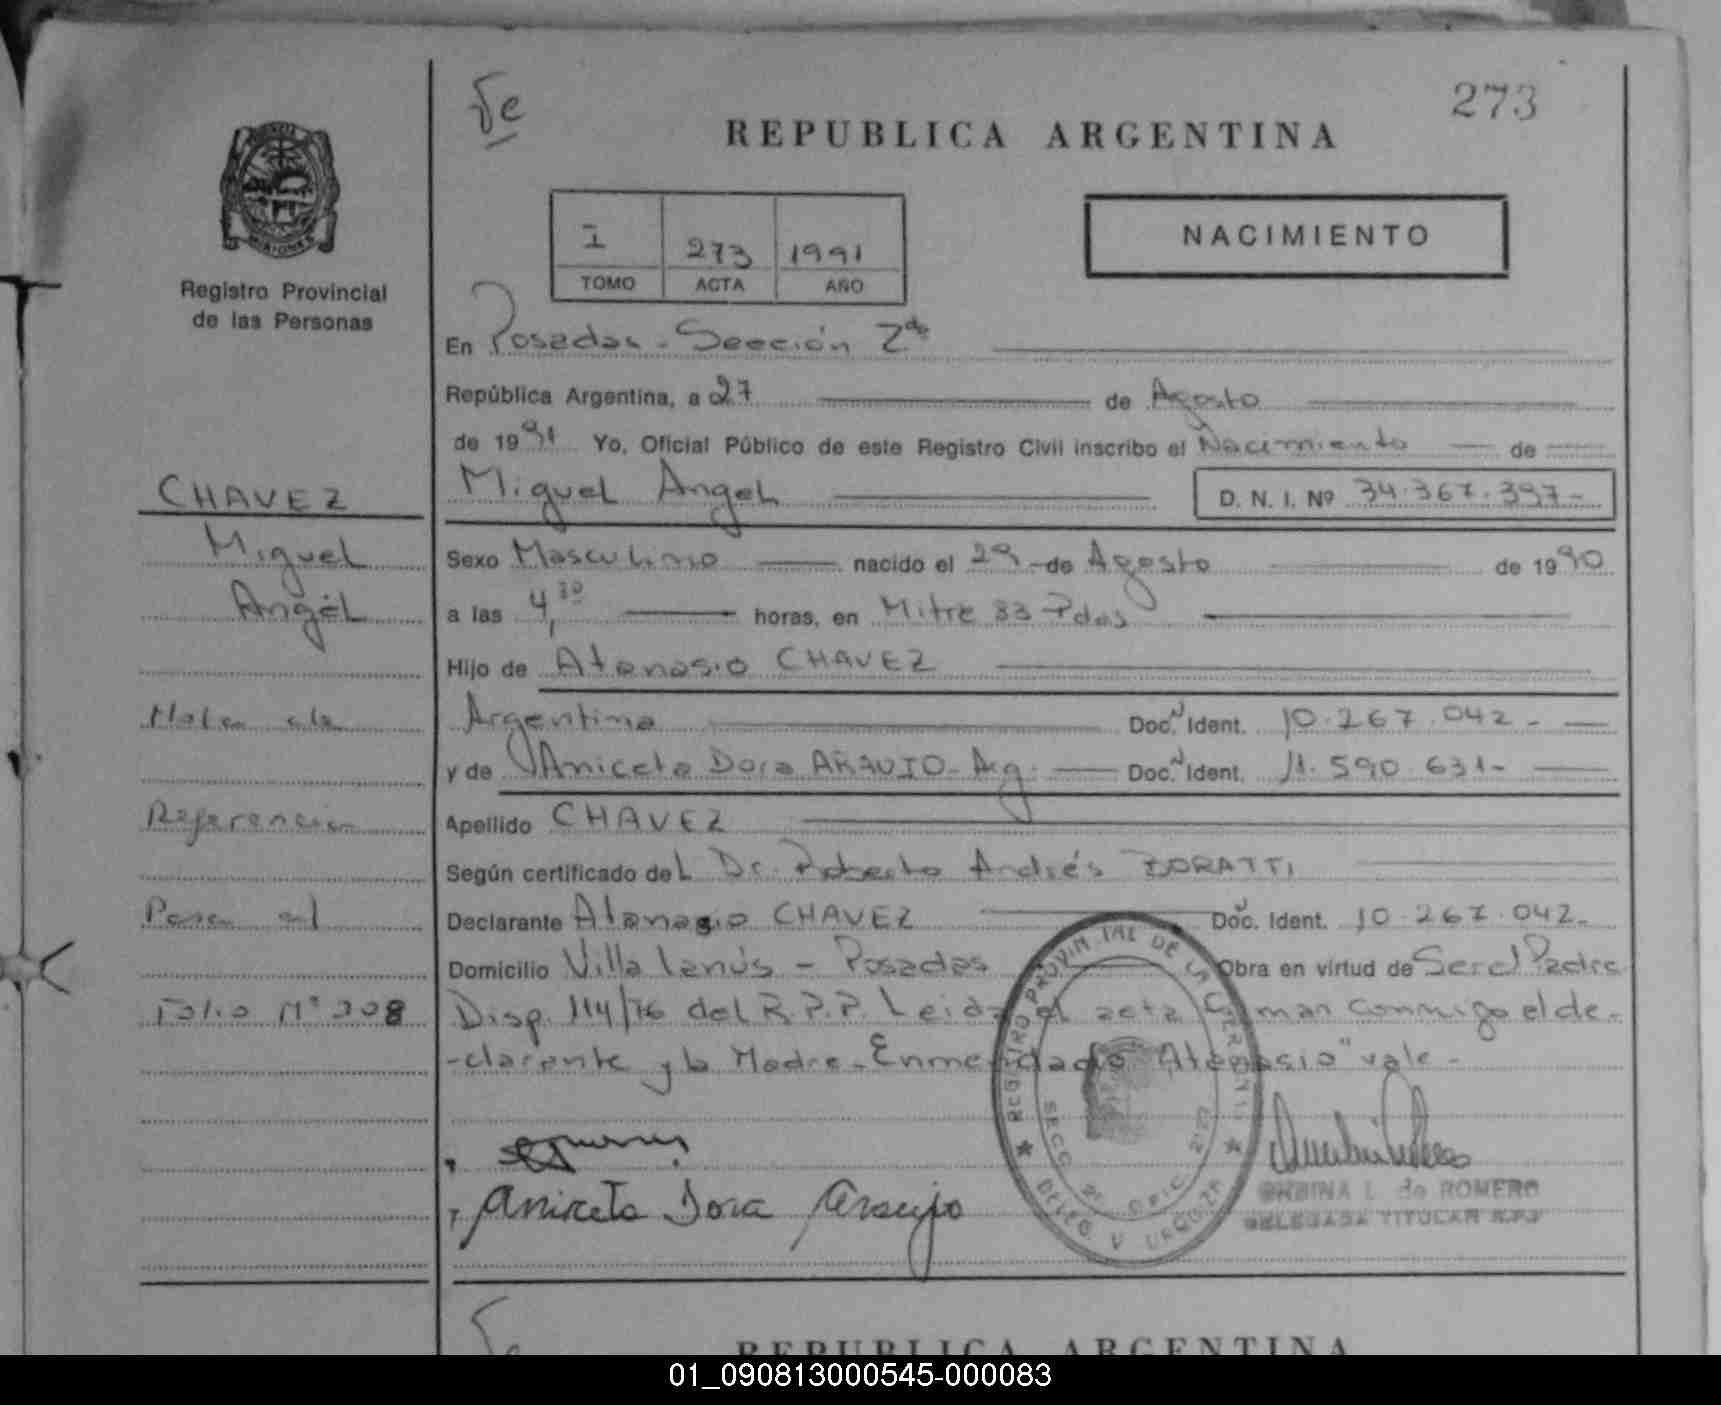 Je
273
REPUBLICA ARGENTINA
I 273 1991
TOMO ACTA AÑO
NACIMIENTO
MISIONES
Registro Provincial
de las Personas
En Posadas - Sección 2da
República Argentina, a 27 de Agosto
de 1991 Yo, Oficial Público de este Registro Civil inscribo el Nacimiento de
Miguel Angel D. N. I. Nº 34.367.397-
CHAVEZ
Miguel
Angel
Sexo Masculino nacido el 29 de Agosto de 1990
a las 4,30 horas, en Mitre 83 Pdas
Hijo de Atanasio CHAVEZ
Argentina Doc. Ident. 10.267.042-
y de Aniceta Dora ARAUJO - Arg. Doc. Ident. 11.590.631-
Apellido CHAVEZ
Según certificado del Dr. Roberto Andrés BORATTI
Declarante Atanasio CHAVEZ Doc. Ident. 10.267.042-
Domicilio Villa Lanús - Posadas Obra en virtud de Ser el Padre
Disp. 114/76 del R.P.P. Leida el acta firman conmigo el de-
-clarante y la Madre - Enmendado "Atanasio" vale -
Nota de
Referencia
Pasa al
Folio Nº 308
Aniceta Dora Araujo
REGISTRO PROVINCIAL DE LAS PERSONAS
SECC. 2ª OFIC.
DELEG. V. URQUIZA
L. de ROMERO
DELEGADA TITULAR R.P.P.
Je
REPUBLICA ARGENTINA
01_090813000545-000083